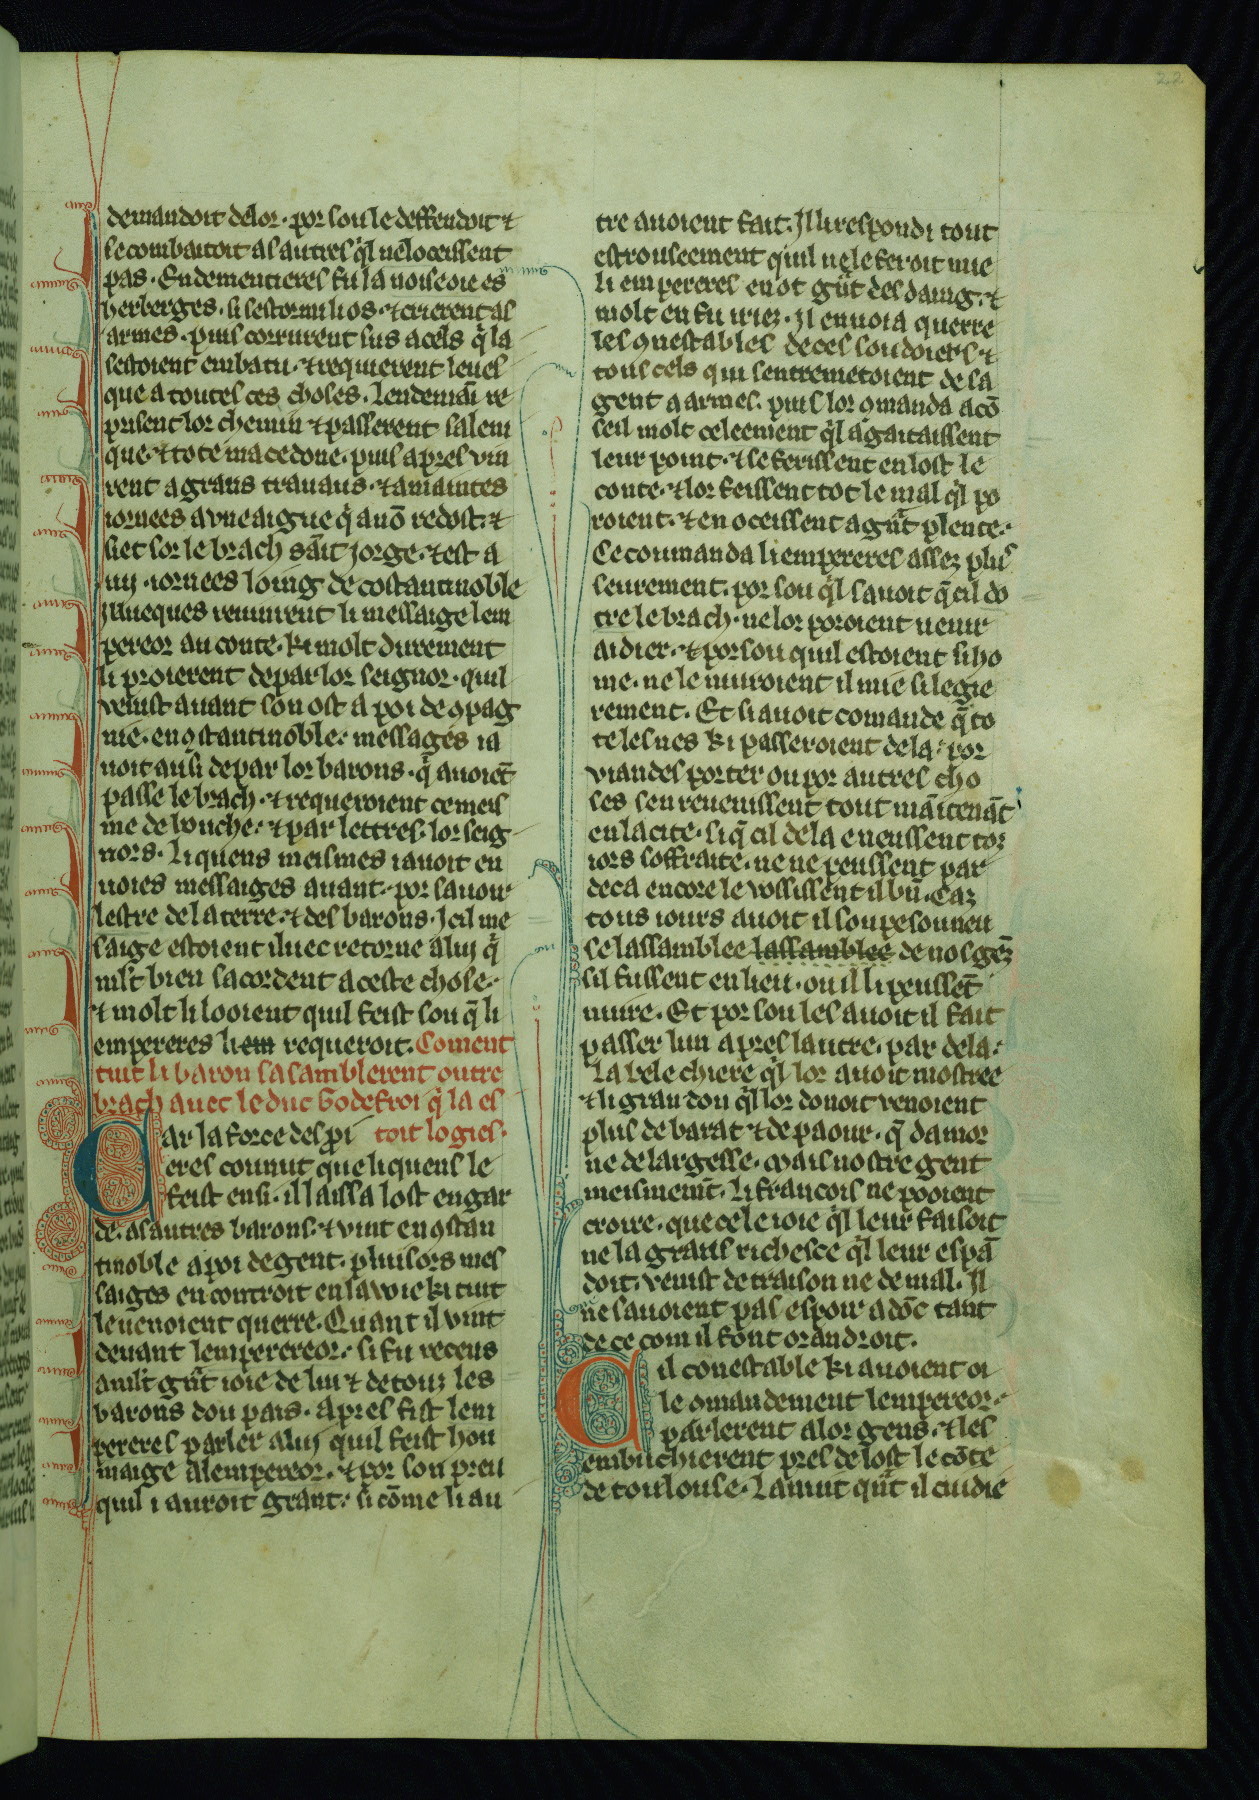 22
demandoit delor. por sou le deffendoit ⁊
se combatoit as autres q̃l ne locessent
pas. Endementieres fu la noise oie es
herberges. si sestormi li os. ⁊ crierent as
armes. puis corrurent sus a cels q̃ la
sestoient embatu. ⁊ requierent leues
que a toutes ces choses. lendemaĩ re
prisent lor chemin ⁊ passerent salem
que. ⁊ tote macedone. puis apres vin
rent a grans travaus. ⁊ a maintes
iornees a vne aigue q̃ a nõ redost. ⁊
siet sor le brach sãit jorge. ⁊ est a
iiij. iornees loing de costantinoble
Illueques vinrent li messaige lem
pereor au conte. ki molt durement
li proierent de par lor seignor. quil
venist auant son ost a poi de ꝯpag
nie. en ꝯstantinoble. messages i a
uoit ausi de par lor barons. q̃ auoiẽt
passe le brach. ⁊ requeroient ce meis
me de bouche. ⁊ par lettres. lor seig
nors. li quens meismes i auoit en
uoies messaiges auant. por sauoir
lestre de la terre. ⁊ des barons. Icil me
saige estoient iluec retorne a luj q̃
ml̃t bien sacordent a ceste chose.
⁊ molt li looient quil feist sou q̃ li
empereres li em requeroit. Coment
tuit li baron sasamblerent outre
brach auec le duc Godefroi q̃ la es
Car la force des pi toit logies.
eres connut que li quens le
feist ensi. il laissa lost en gar
de. as autres barons. ⁊ vint en ꝯstan
tinoble a poi de gent. pluisors mes
saiges encontroit en la voie ki tuit
le uenoient querre. Quant il vint
deuant lemperereor. si fu receus
a ml̃t gñt ioie de lui ⁊ de touz les
barons dou pais. Apres fist lem
pereres parler a luj quil feist hon
maige a lempereor. ⁊ por son preu
quil i auroit grant. si cõme li au
tre auoient fait. Il li respondi tout
estrouseement quil ne le feroit mie
li empereres en ot gñt desdaing. ⁊
molt en fu iriez. Il enuoia querre
les ꝯnestables de ces soudoiers ⁊
tous cels qui sentremetoient de sa
gent a armes. puis lor ꝯmanda a cõ
seil molt celeement q̃l agaitaissent
leur point. ⁊ se ferissent en lost le
conte. ⁊ lor feissent tot le mal q̃l po
roient. ⁊ en oceissent a gñt plente.
Ce coumanda li empereres assez plus
seurement. por sou q̃l sauoit q̃ cil do
tre le brach. ne lor poroient uenir
aidier. ⁊ por sou quil estoient si ho
me. ne le nuiroient il mie si legie
rement. Et si auoit comande q̃ to
te les nes ki passeroient de la. por
viandes porter ou por autres cho
ses sen reuenissent tout maĩtenãt
en la cite. si q̃ cil de la e neussent toz
iors soffraite. ne ne peussent par
deca encore le vossissent il bñ. Caz
tous iours auoit il soupesouneu
se lassamblee lassamblee de nos gẽz
sil fussent en lieu. ou il li peussẽt
nuire. Et por sou les auoit il fait
passer lun apres lautre. par dela.
La bele chiere q̃l lor auoit mostree
⁊ li gran dou q̃l lor donoit venoient
plus de barat ⁊ de paour. q̃ damor
ne de largesse. Mais nostre gent
meismemt̃. li francois ne pooient
croire. que cele ioie q̃l leur faisoit
ne la grans richesce q̃l leur espã
doit. venist de traison ne de mal. Il
ne sauoient pas espoir a dõc tant
de ce com il font orandroit.
Cil conestable ki auoient oi
le ꝯmandement lempereor.
parlerent a lor gens. ⁊ les
embuchierent pres de lost le cõte
de toulouse. La nuit qñt il cuidie